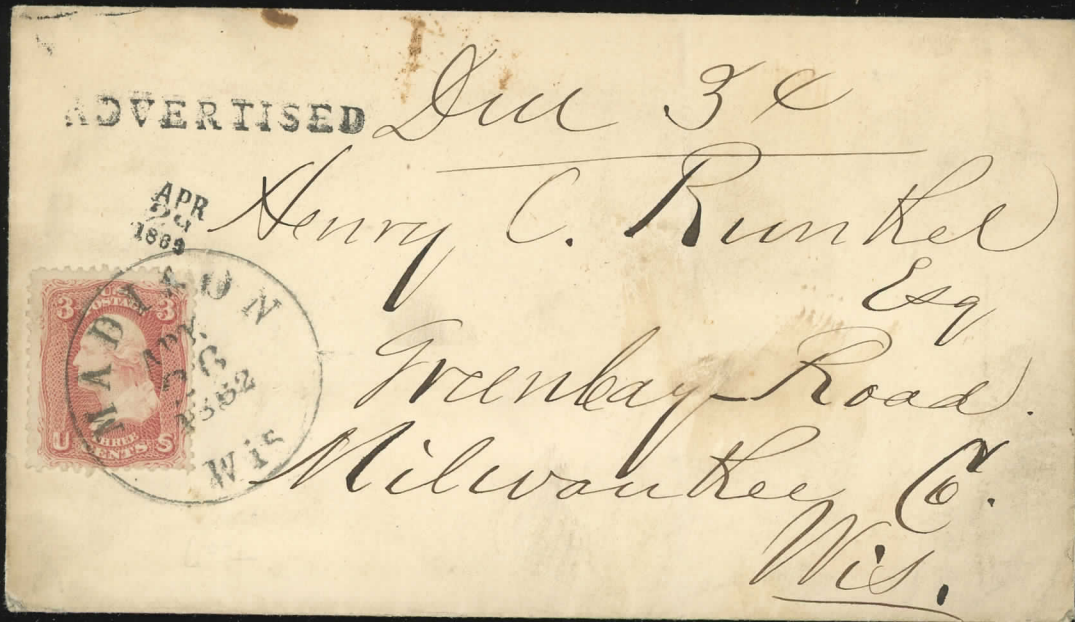 ADVERTISED
Due 3 ¢
APR
1869
Henry C. Runkel
Esq
Greenbay Road.
Milwaukee Co.
Wis.
MADISON
Apr.
26
1862
Wis
3 U.S. POSTAGE 3
U THREE CENTS S